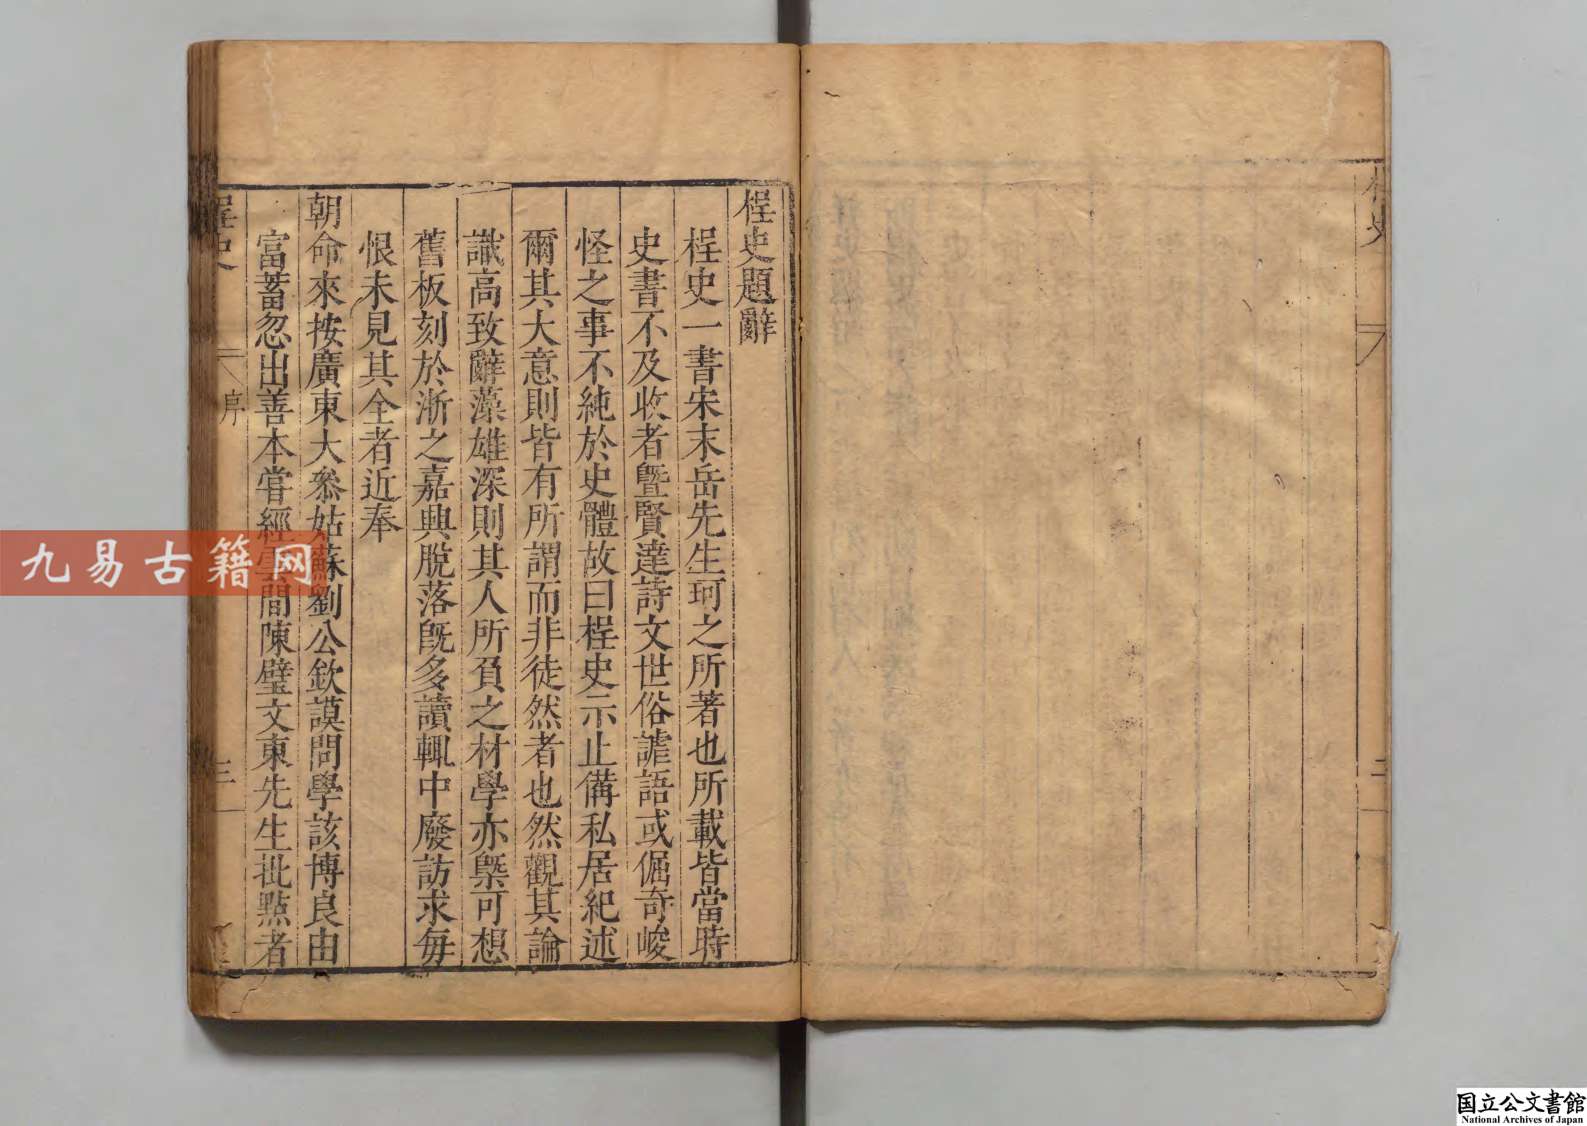 桯史題辭
桯史一書宋末岳先生珂之所著也所載皆當時
史書不及收者曁賢達詩文世俗謔語或倔奇峻
怪之事不純於史體故曰桯史示止備私居紀述
爾其大意則皆有所謂而非徒然者也然觀其論
議高致辭藻雄深則其人所負之材學亦槩可想
舊板刻於浙之嘉興脫落旣多讀輒中廢訪求每
恨未見其全者近奉
朝命來按廣東大叅姑蘇劉公欽謨問學該博良由
富蓄忽出善本嘗經雲間陳璧文東先生批點者
桯史
序
三
九易古籍网
国立公文書館
National Archives of Japan